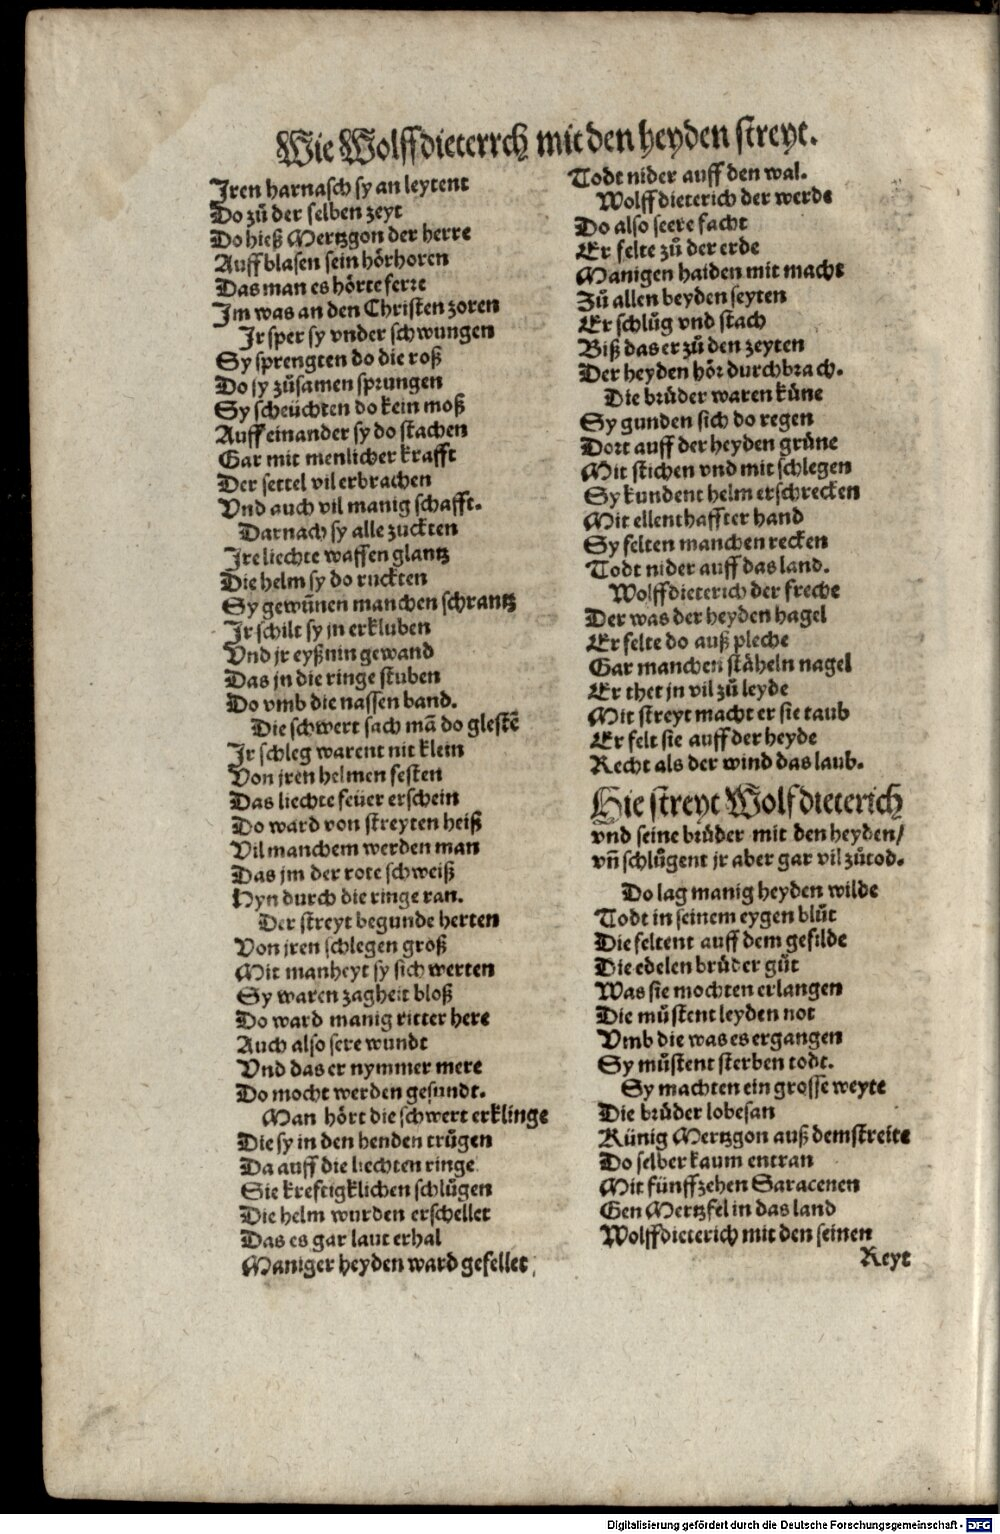 Wie Wolffdieterrch mit den heyden streyt.
Jren harnasch sy an leytent
Do zuͦ der selben zeyt
Do hieß Mertzgon der herre
Auff blasen sein hoͤrhoren
Das man es hoͤrte ferre
Jm was an den Christen zoren
Jr sper sy vnder schwungen
Sy sprengten do die roß
Do sy zuͦsamen sprungen
Sy scheüchten do kein moß
Auff einander sy do stachen
Gar mit menlicher krafft
Der settel vil erbrachen
Vnd auch vil manig schafft.
Darnach sy alle zuckten
Jre liechte waffen glantz
Die helm sy do ruckten
Sy gewünnen manchen schrantz
Jr schilt sy jn erkluben
Vnd jr eyßnin gewand
Das jn die ringe stuben
Do vmb die nassen band.
Die schwert sach mā do glestē
Jr schleg warent nit klein
Von jren helmen festen
Das liechte feüer erschein
Do ward von streyten heiß
Vil manchem werden man
Das jm der rote schweiß
Hyn durch die ringe ran.
Der streyt begunde herten
Von jren schlegen groß
Mit manheyt sy sich werten
Sy waren zagheit bloß
Do ward manig ritter here
Auch also sere wundt
Vnd das er nymmer mere
Do mocht werden gesundt.
Man hört die schwert erklinge
Die sy in den henden truͦgen
Da auff die liechten ringe
Sie kreftigklichen schluͦgen
Die helm wurden erschellet
Das es gar laut erhal
Maniger heyden ward gefellet
Todt nider auff den wal.
Wolff dieterich der werde
Do also seere facht
Er felte zuͦ der erde
Manigen haiden mit macht
Zuͦ allen beyden seyten
Er schluͦg vnd stach
Biß das er zuͦ den zeyten
Der heyden hoͤr durchbrach.
Die bruͤder waren küne
Sy gunden sich do regen
Dort auff der heyden gruͤne
Mit stichen vnd mit schlegen
Sy kundent helm erschrecken
Mit ellenthaffter hand
Sy felten manchen recken
Todt nider auff das land.
Wolffdieterich der freche
Der was der heyden hagel
Er felte do auß pleche
Gar manchen staͤheln nagel
Er thet jn vil zuͦ leyde
Mit streyt macht er sie taub
Er felt sie auff der heyde
Recht als der wind das laub.
Hie streyt Wolfdieterich
vnd seine bruͤder mit den heyden/
vn̄ schluͦgent jr aber gar vil zuͦtod.
Do lag manig heyden wilde
Todt in seinem eygen bluͦt
Die feltent auff dem gefilde
Die edelen bruͤder guͦt
Was sie mochten erlangen
Die muͦstent leyden not
Vmb die was es ergangen
Sy muͦstent sterben todt.
Sy machten ein grosse weyte
Die bruͤder lobesan
Künig Mertzgon auß dem streite
Do selber kaum entran
Mit fünffzehen Saracenen
Gen Mertzfel in das land
Wolffdieterich mit den seinen
Reyt
Digitalisierung gefördert durch die Deutsche Forschungsgemeinschaft - DFG